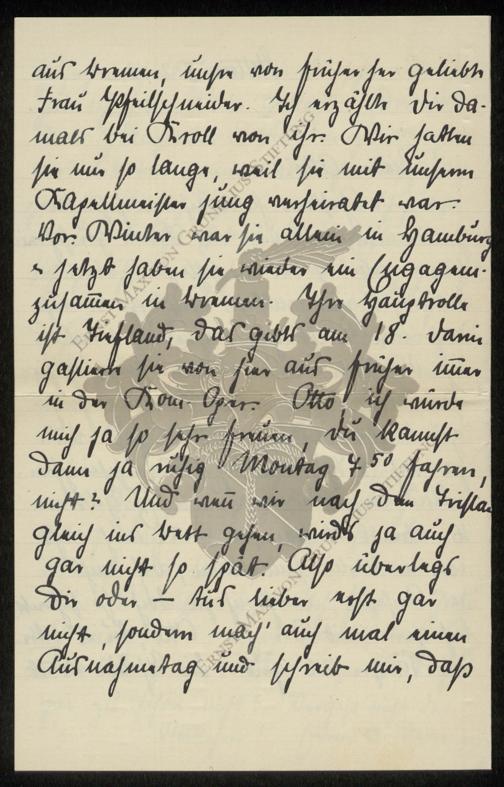 aus Bremen, unsre von früher her geliebte
Frau Pfeilschneider. Ich erzählte Dir da-
mals bei Kroll von ihr. Wir hatten
sie nur so lange, weil sie mit unserm
Kapellmeister jung verheiratet war.
Vor. Winter war sie allein in Hamburg
u jetzt haben sie wieder ein Engagem.
zusam̅en in Bremen. Ihre Hauptrolle
ist Tiefland, das gibts am 18. Darin
gastierte sie von hier aus früher im̅er
in der Kom. Oper. Otto, ich würde
mich ja so sehr freuen, Du kannst
dann ja ruhig Montag 7.50 fahren,
nicht? Und wen̅ wir nach dem Tristan
gleich ins Bett gehen, wird's ja auch
gar nicht so spät. Also überlegs
Dir oder – tus lieber erst gar
nicht, sondern mach' auch mal einen
Ausnahmetag und schreib mir, daß
Ernst-Max-von-Grunelius-Stiftung
Ernst-Max-von-Grunelius-Stiftung